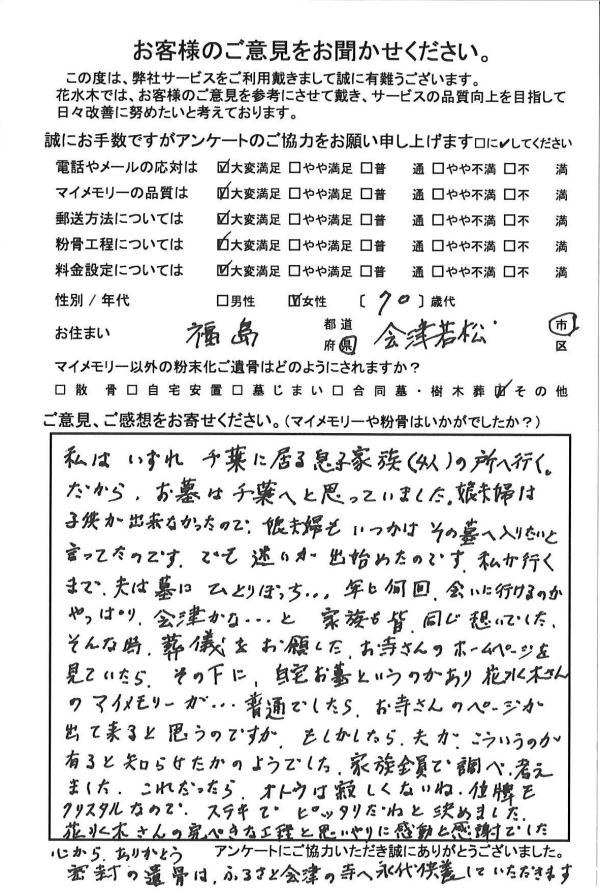 お客様のご意見をお聞かせください。
この度は、弊社サービスをご利用戴きまして誠に有難うございます。
花水木では、お客様のご意見を参考にさせて戴き、サービスの品質向上を目指して
日々改善に努めたいと考えております。
誠にお手数ですがアンケートのご協力をお願い申し上げます□に✔してください
電話やメールの応対は ☑大変満足 □やや満足 □普 通 □やや不満 □不 満
マイメモリーの品質は ☑大変満足 □やや満足 □普 通 □やや不満 □不 満
郵送方法については ☑大変満足 □やや満足 □普 通 □やや不満 □不 満
粉骨工程については ☑大変満足 □やや満足 □普 通 □やや不満 □不 満
料金設定については ☑大変満足 □やや満足 □普 通 □やや不満 □不 満
性別 / 年代 □男性 ☑女性 〔 70 〕歳代
お住まい 福島 都道府県 会津若松 市区
マイメモリー以外の粉末化ご遺骨はどのようにされますか?
□散 骨 □自宅安置 □墓じまい □合同墓・樹木葬 ☑その他
ご意見、ご感想をお寄せください。(マイメモリーや粉骨はいかがでしたか?)
私は いずれ 千葉に居る息子家族(4人)の所へ行く。
だから、お墓は千葉へと思っていました。娘夫婦は
子供が出来なかったので、娘夫婦も いつかは その墓へ入りたいと
言ってたのです。でも 迷いが 出始めたのです。私が行く
まで、夫は墓に ひとりぼっち… 年に何回、会いに行けるのか
やっぱり、会津かな…と 家族も皆、同じ想いでした。
そんな時、葬儀をお願した、お寺さんのホームページを
見ていたら、その下に、自宅お墓というのがあり 花水木さん
のマイメモリーが… 普通でしたら、お寺さんのページが
出て来ると思うのですが、もしかしたら、夫が、こういうのが
有ると知らせたかのようでした。家族全員で調べ、考え
ました。これだったら、オトウは寂しくないね。位牌も
クリスタルなので、ステキで ピッタリだねと決めました。
花水木さんの完ぺきな工程と思いやりに感動と感謝でした
心から、ありがとう アンケートにご協力いただき誠にありがとうございました。
密封の遺骨は、ふるさと会津の寺へ永代供養していただきます